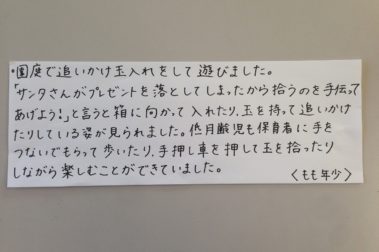 ・園庭で追いかけ玉入れをして遊びました。
「サンタさんがプレゼントを落としてしまったから拾うのを手伝って
あげよう!」と言うと箱に向かって入れたり、玉を持って追いかけ
たりしている姿が見られました。低月齢児も保育者に手を
つないでもらって歩いたり、手押し車を押して玉を拾ったり
しながら楽しむことができていました。
〈もも年少〉